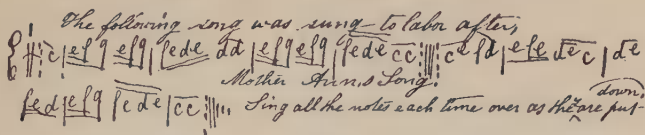 The following song was sung to labor after,
c | efg efg | fede dd | efg efg | fede cc :||: ce fd | efe dec | de
Mother Ann,s Song.
fed | efg fede | cc :||: Sing all the notes each time over as they are put down.